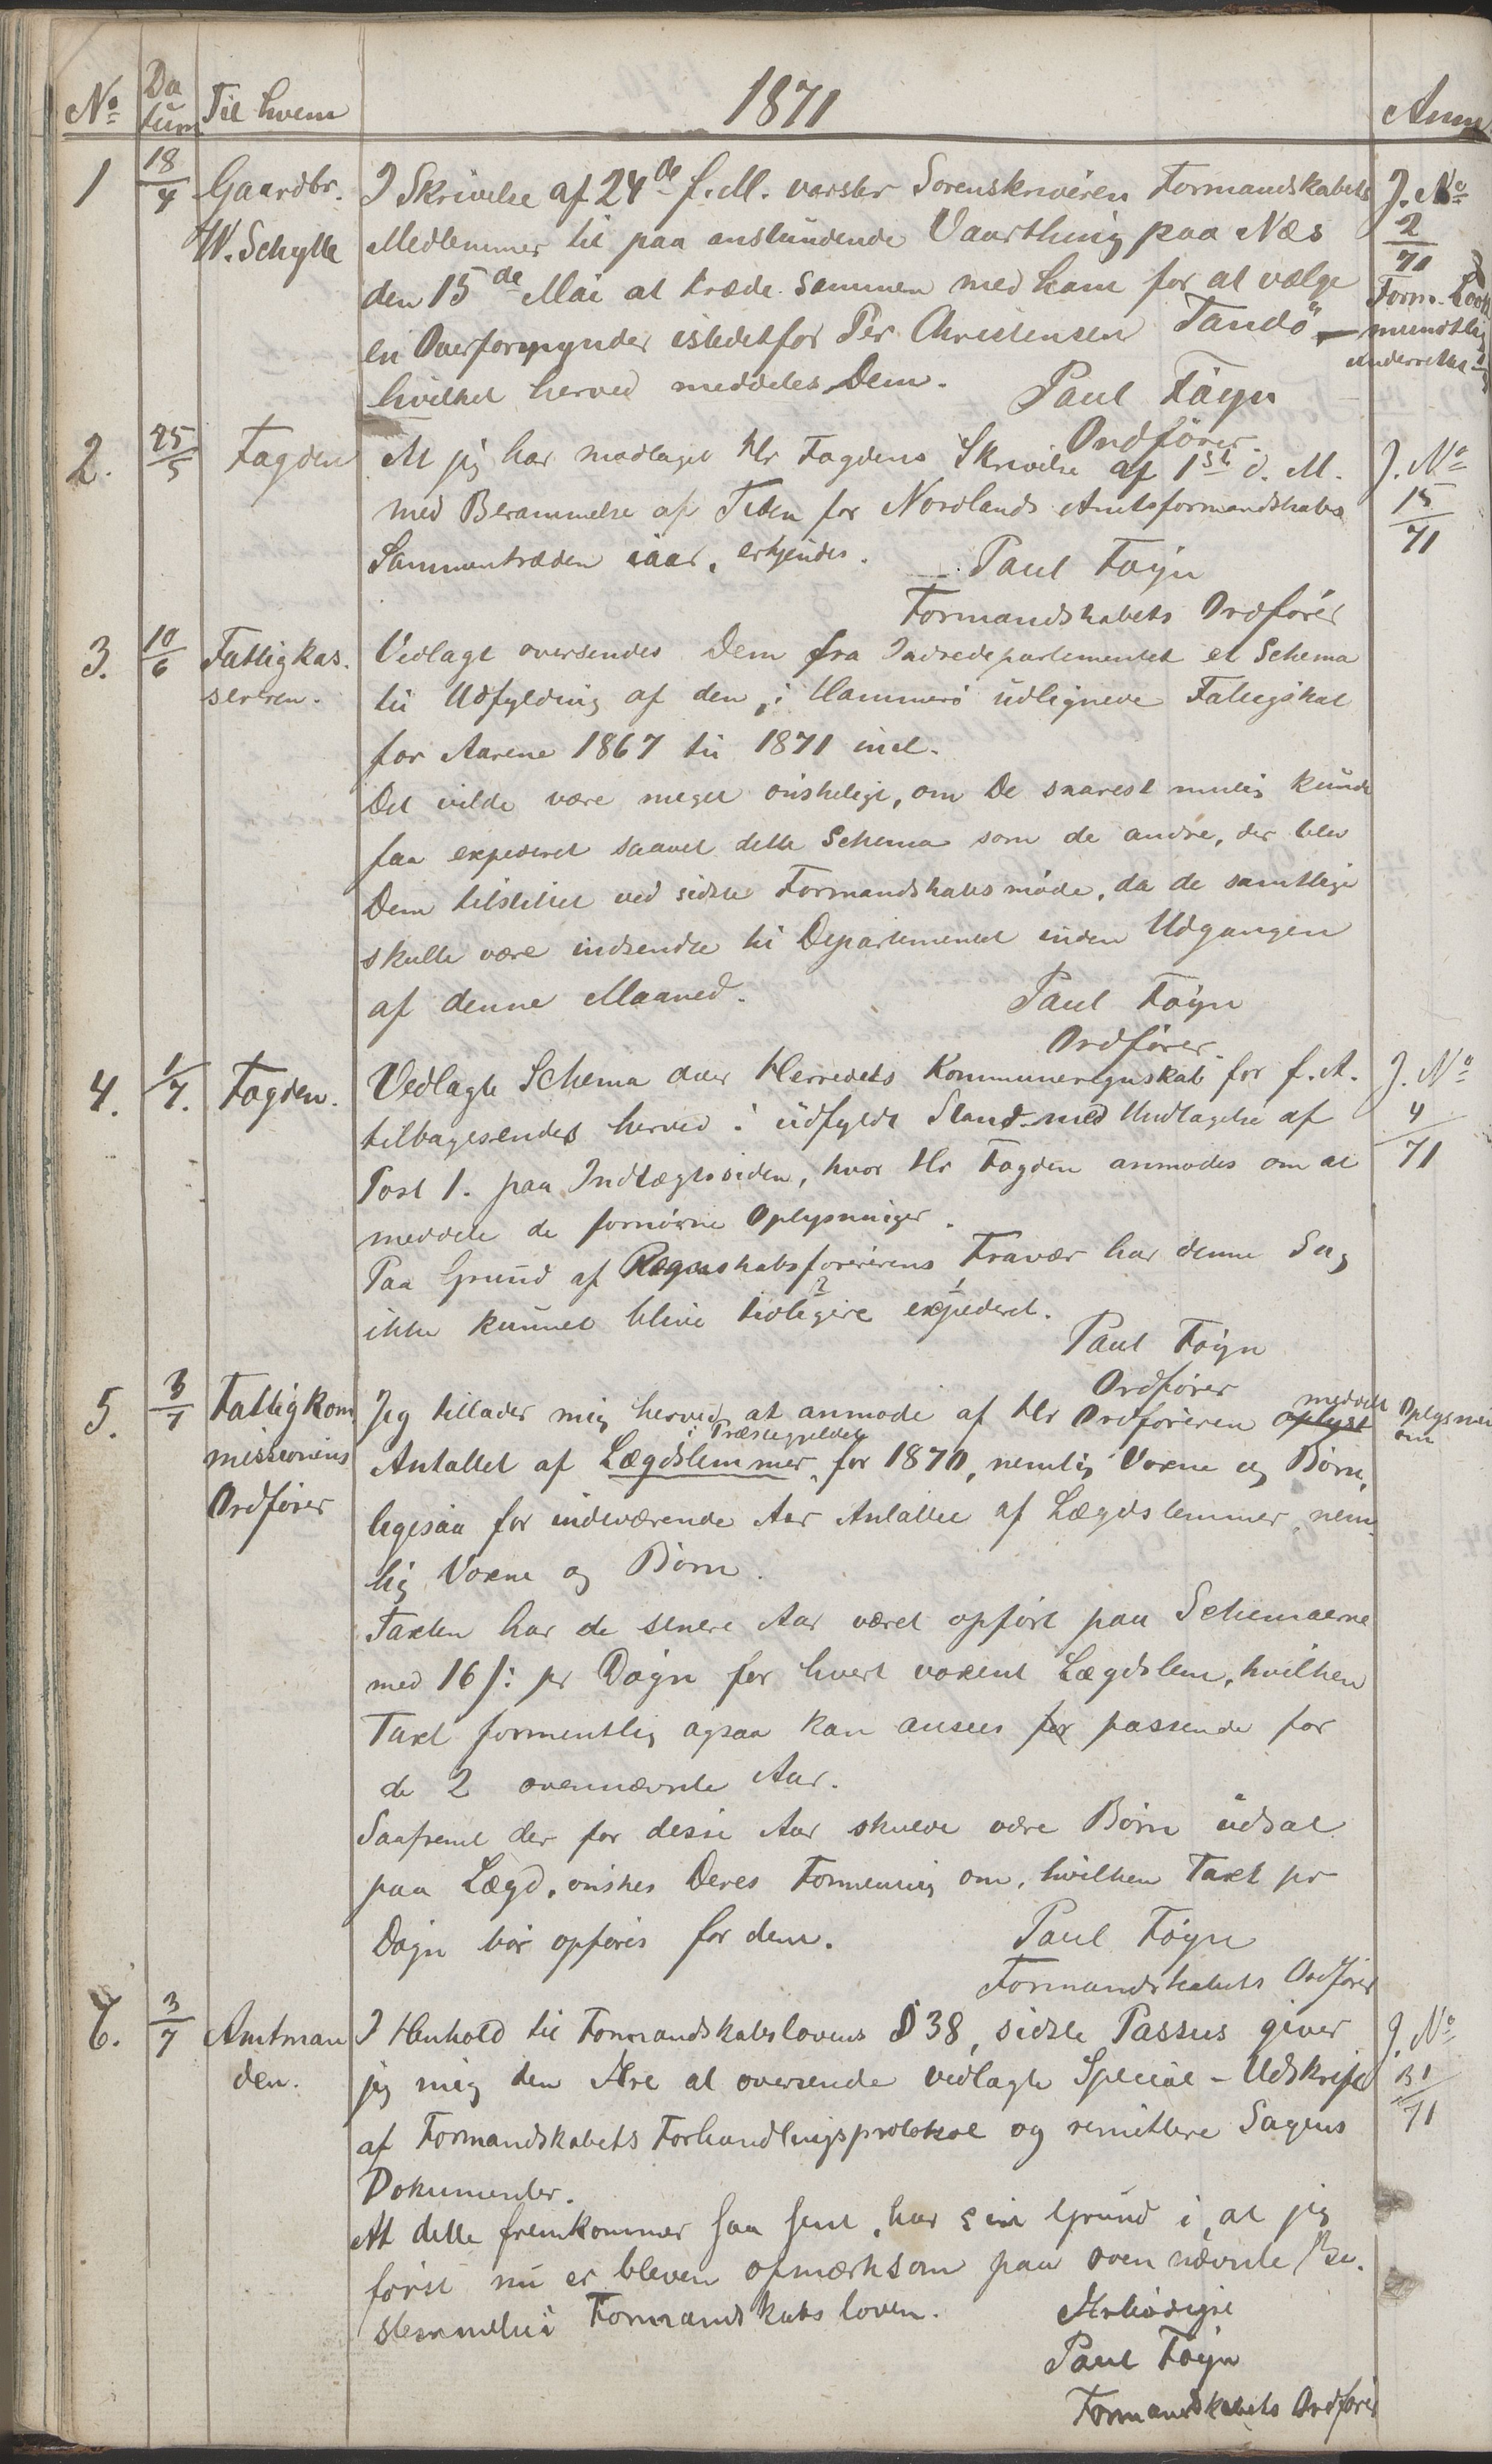 No Da tum Til hvem 1871 Anm
1 18/4 Gaardbr. I Skrivelse af 24de f. M. varsler Sorenskriveren Formandskabets J. No
W. Schytte Medlemmer til paa anstundende Vaarthing paa Næs 2/71
den 15de Mai at træde sammen med ham for at vælge Form.
en Overformynder istedetfor Per Christensen Tandö — mundtlig
hvilket herved meddeles Dem. underrettet
Paul Föyn
Ordförer.
2. 25/5 Fogden At jeg har modtaget Hr Fogdens Skrivelse af 1st d. M. J. No
med Berammelse af Tiden for Nordlands Amtsformandskabs 15/71
Sammentræden iaar, erkjendes.
Paul Föyn
Formandskabets Ordförer
3. 10/6 Fattigkas- Vedlagt oversendes Dem fra Indredepartementet et Schema
sereren. til Udfylding af den i Hammerö udlignede Fattigskat
for Aarene 1867 til 1871 incl.
Det vilde være meget önskeligt, om De snarest mulig kunde
faa expederet saavel dette Schema som de andre, der blev
Dem tilstillet ved sidste Formandskabsmöde, da de samtlige
skulle være indsendte til Departementet inden Udgangen
af denne Maaned.
Paul Föyn
Ordförer.
4. 1/7. Fogden. Vedlagte Schema over Herredets Kommuneregnskab for f. A. J. No
tilbagesendes herved i udfyldt Stand med Undtagelse af 4/71
Post 1. paa Indtægtssiden, hvor Hr Fogden anmodes om at
meddele de fornödne Oplysninger.
Paa Grund af Regnskabsförerens Fravær har denne Sag
ikke kunnet blive tidligere expederet.
2 1
Paul Föyn
Ordförer
5. 3/7 Fattigkom Jeg tillader mig herved at anmode af Hr Ordföreren oplyst meddelt Oplysning om
missionens Antallet af Lægdslemmer i Præstegjeldet for 1870, nemlig Voxne og Börn,
Ordförer ligesaa for indeværende Aar Antallet af Lægdslemmer, nem-
lig Voxne og Börn.
Taxten har de senere Aar været opfört paa Schemaerne
med 16 ß: pr Dögn for hvert voxent Lægdslem, hvilken
Taxt formentlig ogsaa kan ansees for passende for
de 2 ovennævnte Aar.
Saafremt der for disse Aar skulde være Börn udsat
paa Lægd, önskes Deres Formening om, hvilken Taxt pr
Dögn bör opföres for dem.
Paul Föyn
Formandskabets Ordförer
6. 3/7 Amtman I Henhold til Formandskabslovens § 38, sidste Passus giver J. No
den. jeg mig den Ære at oversende vedlagte Special-Udskrift 31/71
af Formandskabets Forhandlingsprotokol og remittere Sagens
Dokumenter.
At dette fremkommer saa sent, har sin Grund i, at jeg
först nu er bleven opmærksom paa ovennævnte Be-
stemmelse i Formandskabsloven.
Ærbödigst
Paul Föyn
Formandskabets Ordförer